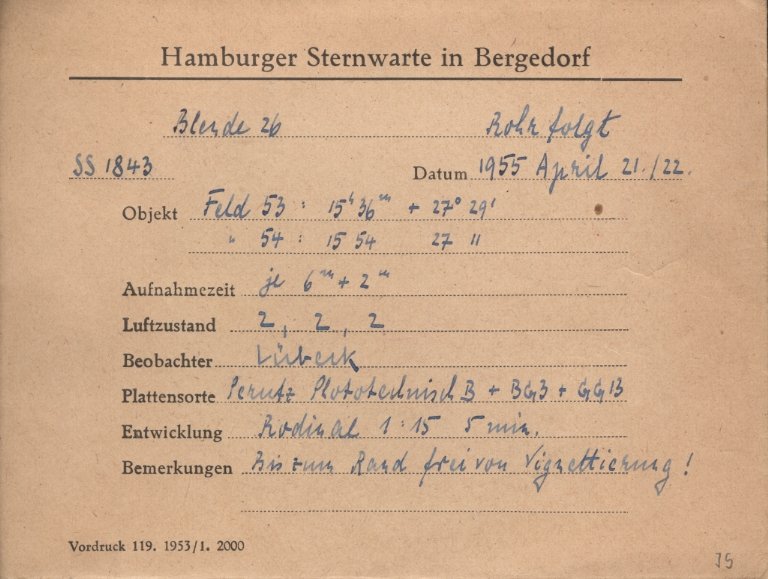 Hamburger Sternwarte in Bergedorf
Blende 26 Rohr folgt
SS 1843 Datum 1955 April 21./22.
Objekt Feld 53 : 15ʰ 36ᵐ + 27° 29'
" 54 : 15 54 27 11
Aufnahmezeit je 6ᵐ + 2ᵐ
Luftzustand 2, 2, 2
Beobachter Lübeck
Plattensorte Perutz Phototechnisch B + BG3 + GG13
Entwicklung Rodinal 1:15 5 min.
Bemerkungen Bis zum Rand frei von Vignettierung!
Vordruck 119. 1953/1. 2000